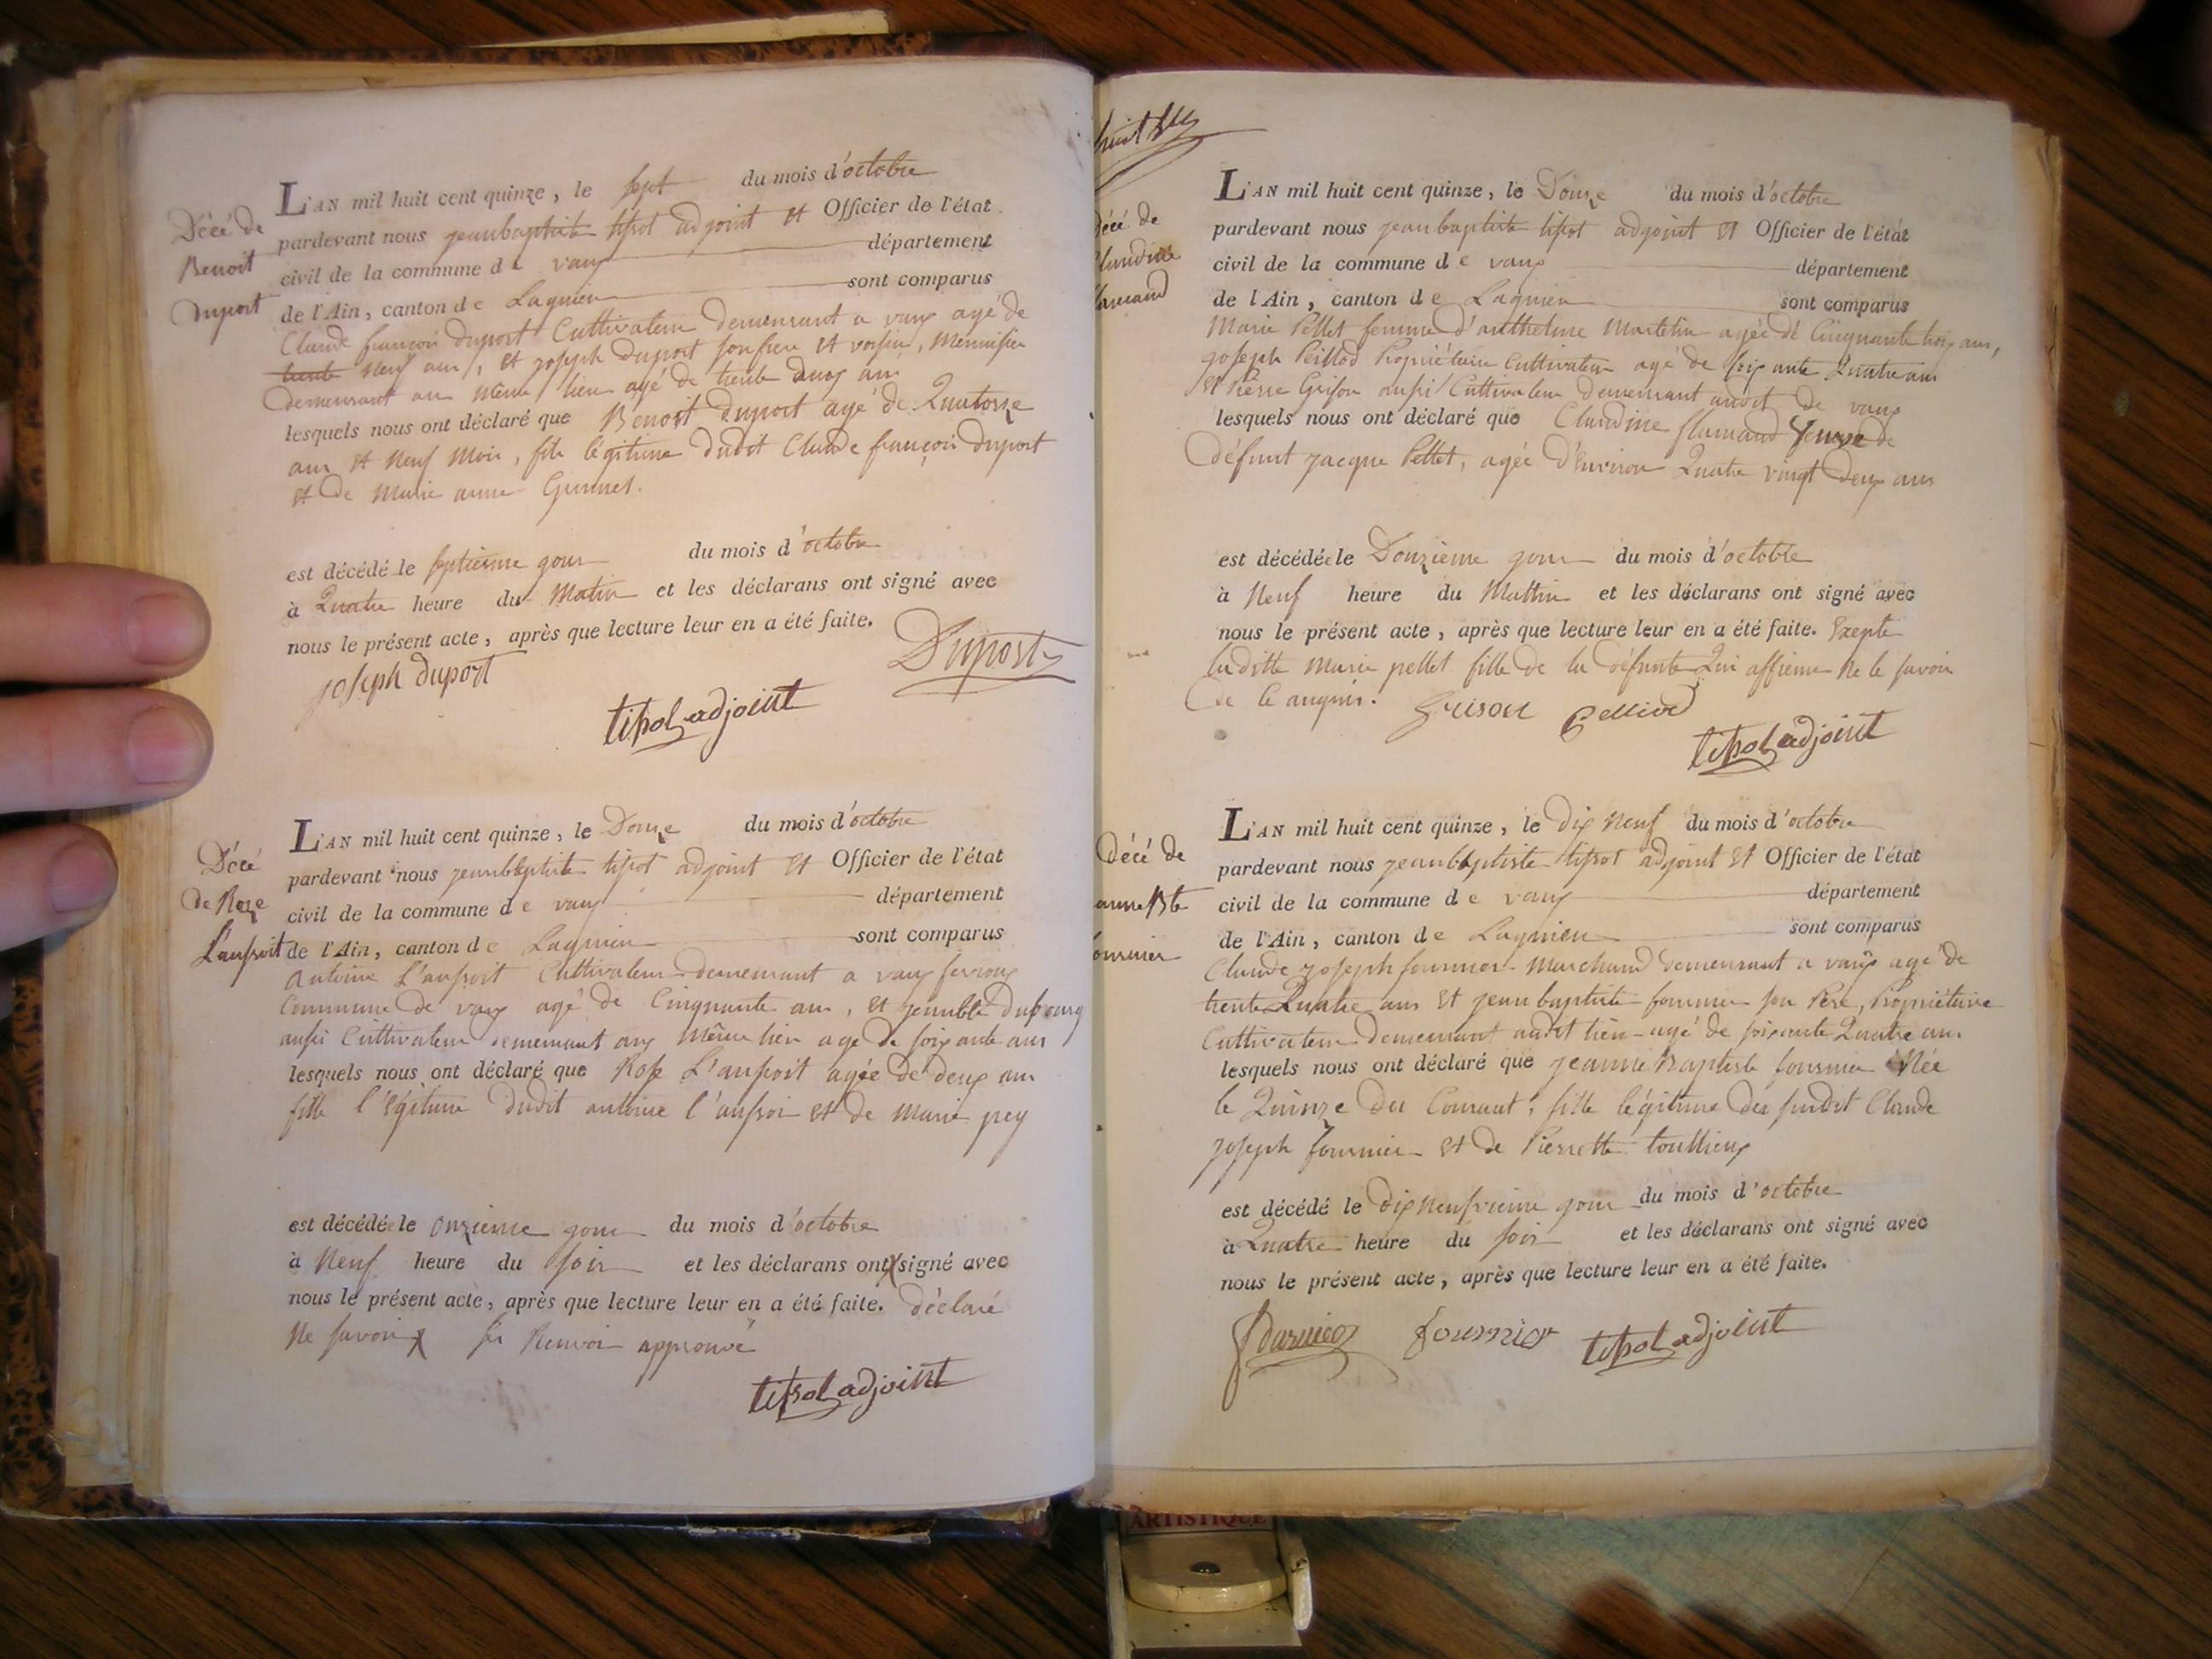 L'AN mil huit cent quinze, le sept du mois d'octobre
Décé de
Benoit
Duport
pardevant nous jeanbaptiste tipot adjoint et Officier de l'état
civil de la commune de vaux département
de l'Ain, canton de Lagnieu sont comparus
Claude françois duport Cultivateur demeurant a vaux agé de
trente neuf ans, et joseph duport son frere et voisin, Menuisier
demeurant au même lieu agé de trente deux ans
lesquels nous ont déclaré que Benoit duport agé de Quatorze
ans et Neuf Mois, fils légitime dudit Claude françois duport
et de Marie anne
est décédé le septieme jour du mois d'octobre
à Quatre heure du Matin et les déclarans ont signé avec
nous le présent acte, après que lecture leur en a été faite.
joseph duport Duport
tipol adjoint
L'AN mil huit cent quinze, le Douze du mois d'octobre
Décé
de Roze
L'aufroit
pardevant nous jeanbaptiste tipot adjoint et Officier de l'état
civil de la commune de vaux département
de l'Ain, canton de Lagnieu sont comparus
antoine L'aufroit Cultivateur demeurant a vaux fevroux
Commune de vaux agé de Cinquante ans, et jeanbte dubourg
aussi Cultivateur demeurant aux Même lieu agé de soixante ans
lesquels nous ont déclaré que Rose L'aufroit agée de deux ans
fille l'égitime dudit antoine l'aufroi et de Marie pey
est décédée le onzieme jour du mois d'octobre
à Neuf heure du soir et les déclarans ont signé avec
nous le présent acte, après que lecture leur en a été faite. déclaré
Ne savoir Renvoi approuvé
tipol adjoint
huit
L'AN mil huit cent quinze, le Douze du mois d'octobre
décé de
Claudine
flamand
pardevant nous jeanbaptiste tipot adjoint et Officier de l'état
civil de la commune de vaux département
de l'Ain, canton de Lagnieu sont comparus
Marie Pellet femme d'anthelme Martelin agée de Cinquante trois ans,
joseph Peillod Propriétaire Cultivateur agé de soixante Quatre ans
et Pierre Grison aussi Cultivateur demeurant audit de vaux
lesquels nous ont déclaré que Claudine flamand veuve de
Défunt jacque Pellet, agée d'Environ Quatre vingt deux ans
est décédée le Douzieme jour du mois d'octobre
à Neuf heure du Mattin et les déclarans ont signé avec
nous le présent acte, après que lecture leur en a été faite. Exepte
laditte Marie pellet fille de la défunte Qui affirme Ne le savoir
de le anquis. Grison Pelliod
tipol adjoint
L'AN mil huit cent quinze, le dix Neuf du mois d'octobre
décé de
jeanne Bte
fournier
pardevant nous jeanbaptiste tipot adjoint et Officier de l'état
civil de la commune de vaux département
de l'Ain, canton de Lagnieu sont comparus
Claude joseph fournier Marchand demeurant a vaux agé de
trente Quatre ans et jean baptiste fournier son Pere, Propriétaire
Cultivateur demeurant audit lieu agé de soixante Quatre ans
lesquels nous ont déclaré que jeanne Baptiste fournier Née
le Quinze du Courant, fille légitime du susdit Claude
joseph fournier et de Pierrette toullieux
est décédé le dix neufvieme jour du mois d'octobre
à Quatre heure du soir et les déclarans ont signé avec
nous le présent acte, après que lecture leur en a été faite.
fournier tipol adjoint
ARTISTIQUE